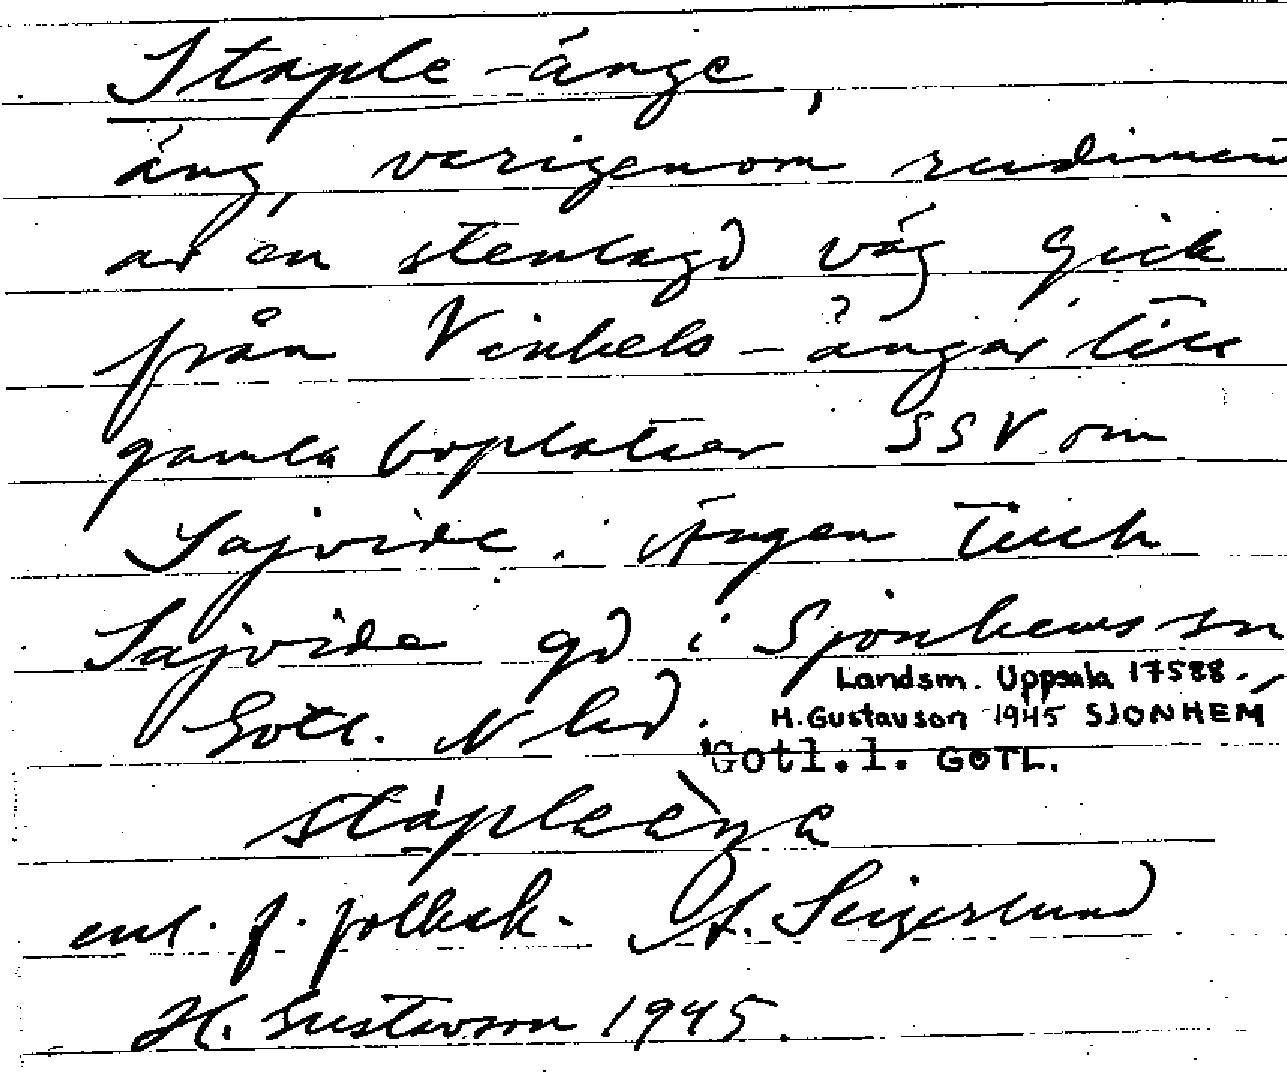 Staple-änge,
äng, varigenom rudimen
av en stenlagd väg gick
från Vinkels-ängar till
gamla boplatser SSV om
Sajvide. Ängen tillh
Sajvide gd i Sjonhems sn
Landsm. Uppsala 17588.
Gotl. N hd.
H. Gustavson 1945 SJONHEM
Gotl.l. GOTL.
enl. f. folksk.
H. Gustavson 1945.